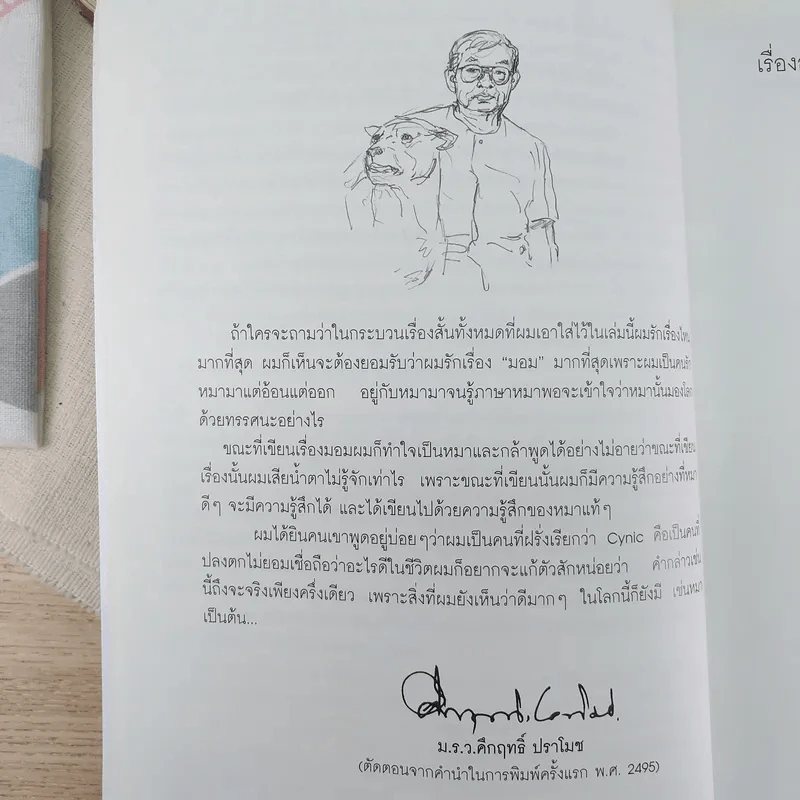 เรื่อง
ถ้าใครจะถามว่าในกระบวนเรื่องสั้นทั้งหมดที่ผมเอาใส่ไว้ในเล่มนี้ผมรักเรื่องไหน
มากที่สุด ผมก็เห็นจะต้องยอมรับว่าผมรักเรื่อง “มอม” มากที่สุดเพราะผมเป็นคนรัก
หมามาแต่อ้อนแต่ออก อยู่กับหมามาจนรู้ภาษาหมาพอจะเข้าใจว่าหมานั้นมองโลก
ด้วยทรรศนะอย่างไร
ขณะที่เขียนเรื่องมอมผมก็ทำใจเป็นหมาและกล้าพูดได้อย่างไม่อายว่าขณะที่เขียน
เรื่องนั้นผมเสียน้ำตาไม่รู้จักเท่าไร เพราะขณะที่เขียนนั้นผมก็มีความรู้สึกอย่างที่หมา
ดีๆ จะมีความรู้สึกได้ และได้เขียนไปด้วยความรู้สึกของหมาแท้ๆ
ผมได้ยินคนเขาพูดอยู่บ่อยๆว่าผมเป็นคนที่ฝรั่งเรียกว่า Cynic คือเป็นคนที่
ปลงตกไม่ยอมเชื่อถือว่าอะไรดีในชีวิตผมก็อยากจะแก้ตัวสักหน่อยว่า คำกล่าวเช่น
นี้ถึงจะจริงเพียงครึ่งเดียว เพราะสิ่งที่ผมยังเห็นว่าดีมากๆ ในโลกนี้ก็ยังมี เช่นหมา
เป็นต้น...
ม.ร.ว.คึกฤทธิ์ ปราโมช
(ตัดตอนจากคำนำในการพิมพ์ครั้งแรก พ.ศ. 2495)